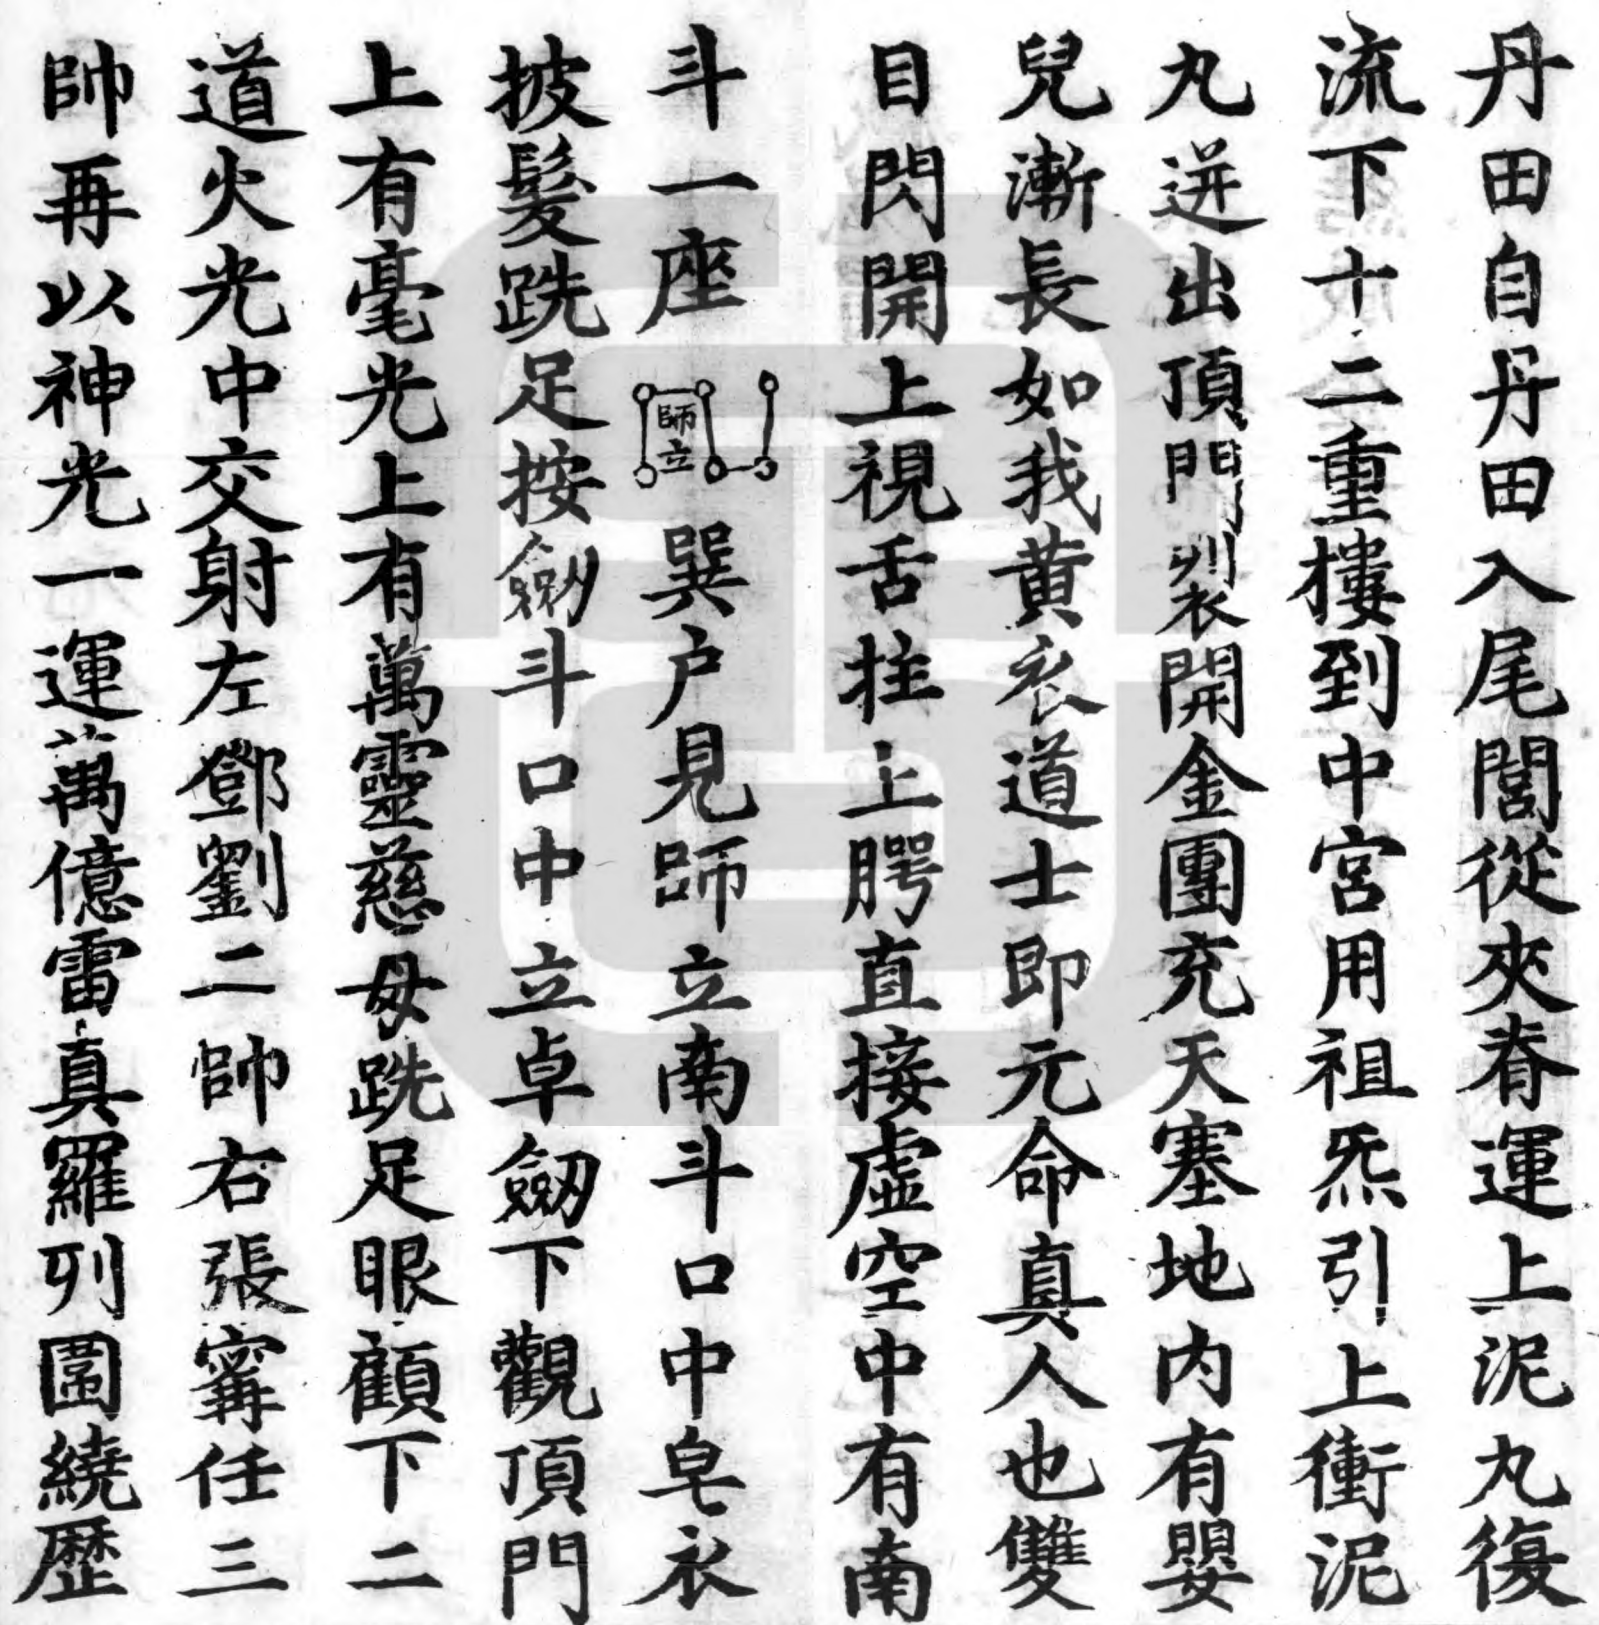 丹田自丹田入尾閭從夾脊運上泥丸復
流下十二重樓到中宮用祖炁引上衝泥
丸迸出頂門裂開金團充天塞地内有嬰
兒漸長如我黄衣道士即元命真人也雙
目閃開上視舌拄上腭直接虛空中有南
斗一座師立巽户見師立南斗口中皂衣
披髮跣足按劒斗口中立卓劒下觀頂門
上有毫光上有萬靈慈母跣足眼顧下二
道火光中交射左鄧劉二帥右張寗任三
帥再以神光一運萬億雷真羅列圍繞歷